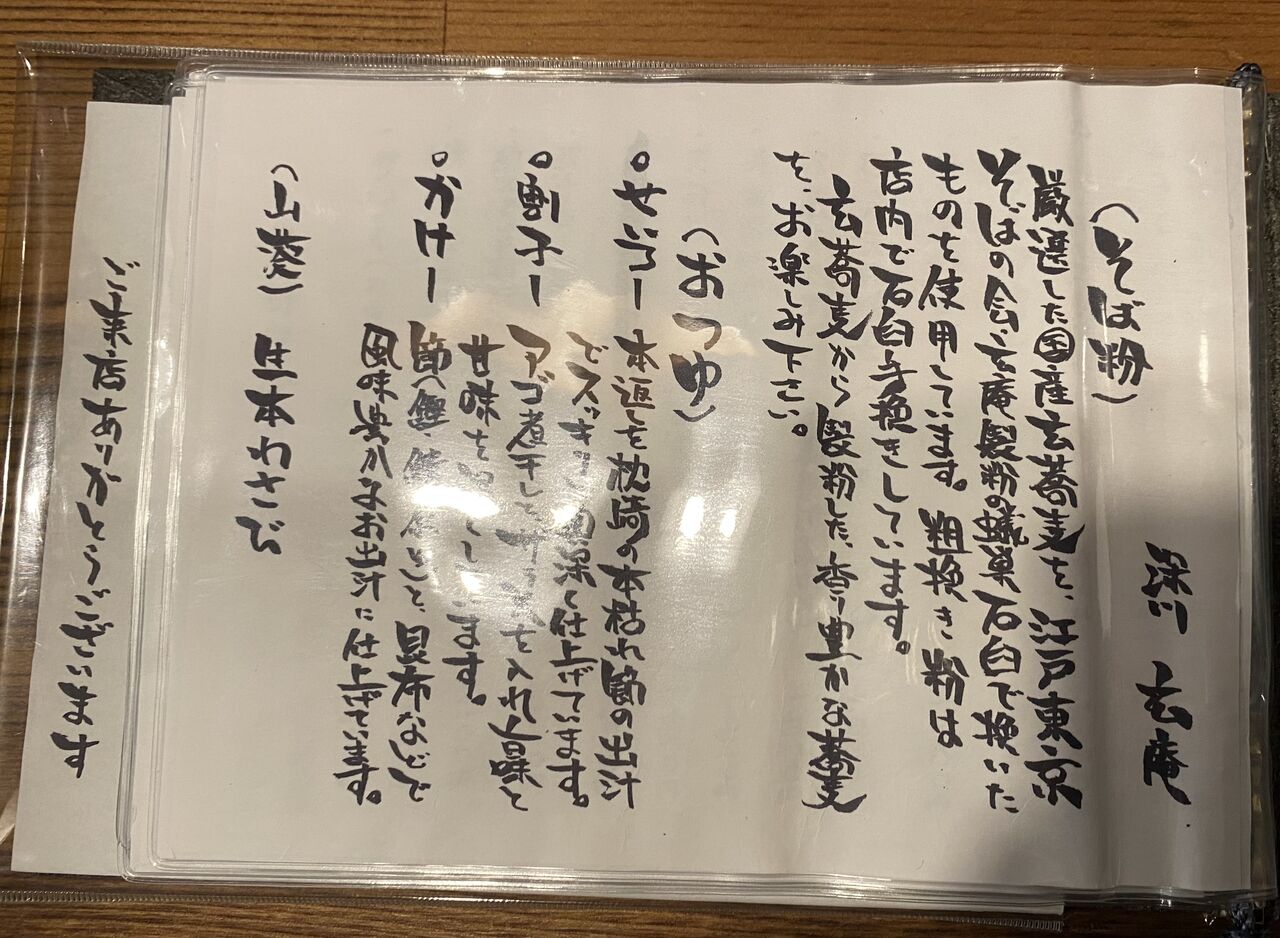 深川 玄庵
（そば粉）
厳選した国産玄蕎麦を、江戸東京
そばの会・玄庵製粉の蟻巣石臼で挽いた
ものを使用しています。粗挽き粉は
店内で石臼手挽きしています。
玄蕎麦から製粉した、香り豊かな蕎麦
を、お楽しみ下さい。
（おつゆ）
○せいろー 本返しを枕崎の本枯れ節の出汁
でスッキリ 仕上げています。
○割子ー アゴ煮干しと、 を入れ旨味と
甘味を ます。
○かけー 節（鰹・ と、昆布などで
風味豊かなお出汁に仕上げています。
（山葵） 生本わさび
ご来店ありがとうございます